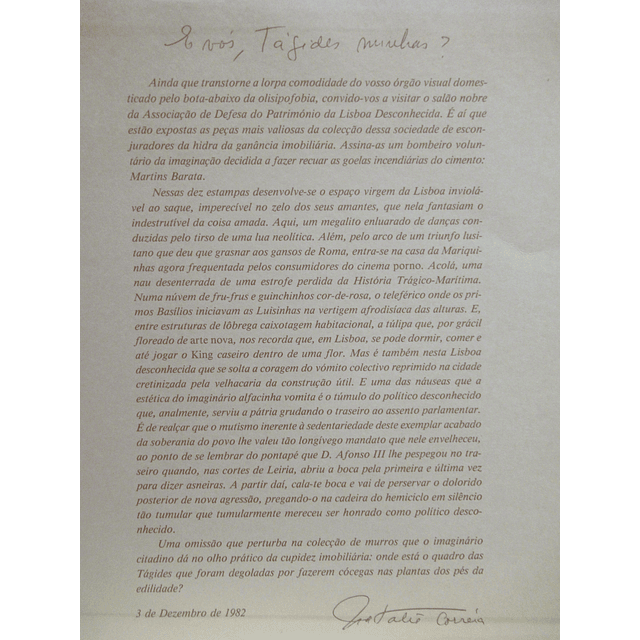 E vós, Tágides minhas?
Ainda que transtorne a lorpa comodidade do vosso órgão visual domes-
ticado pelo bota-abaixo da olisipofobia, convido-vos a visitar o salão nobre
da Associação de Defesa do Património da Lisboa Desconhecida. É aí que
estão expostas as peças mais valiosas da colecção dessa sociedade de escon-
juradores da hidra da ganância imobiliária. Assina-as um bombeiro volun-
tário da imaginação decidida a fazer recuar as goelas incendiárias do cimento:
Martins Barata.
Nessas dez estampas desenvolve-se o espaço virgem da Lisboa inviolá-
vel ao saque, imperecível no zelo dos seus amantes, que nela fantasiam o
indestrutível da coisa amada. Aqui, um megalito enluarado de danças con-
duzidas pelo tirso de uma lua neolítica. Além, pelo arco de um triunfo lusi-
tano que deu que grasnar aos gansos de Roma, entra-se na casa da Mariqui-
nhas agora frequentada pelos consumidores do cinema porno. Acolá, uma
nau desenterrada de uma estrofe perdida da História Trágico-Marítima.
Numa núvem de fru-frus e guinchinhos cor-de-rosa, o teleférico onde os pri-
mos Basílios iniciavam as Luisinhas na vertigem afrodisíaca das alturas. E,
entre estruturas de lôbrega caixotagem habitacional, a túlipa que, por grácil
floreado de arte nova, nos recorda que, em Lisboa, se pode dormir, comer e
até jogar o King caseiro dentro de uma flor. Mas é também nesta Lisboa
desconhecida que se solta a coragem do vómito colectivo reprimido na cidade
cretinizada pela velhacaria da construção útil. E uma das náuseas que a
estética do imaginário alfacinha vomita é o túmulo do político desconhecido
que, analmente, serviu a pátria grudando o traseiro ao assento parlamentar.
É de realçar que o mutismo inerente à sedentariedade deste exemplar acabado
da soberania do povo lhe valeu tão longívego mandato que nele envelheceu,
ao ponto de se lembrar do pontapé que D. Afonso III lhe pespegou no tra-
seiro quando, nas cortes de Leiria, abriu a boca pela primeira e última vez
para dizer asneiras. A partir daí, cala-te boca e vai de perservar o dolorido
posterior de nova agressão, pregando-o na cadeira do hemiciclo em silêncio
tão tumular que tumularmente mereceu ser honrado como político desco-
nhecido.
Uma omissão que perturba na colecção de murros que o imaginário
citadino dá no olho prático da cupidez imobiliária: onde está o quadro das
Tágides que foram degoladas por fazerem cócegas nas plantas dos pés da
edilidade?
3 de Dezembro de 1982
Natália Correia